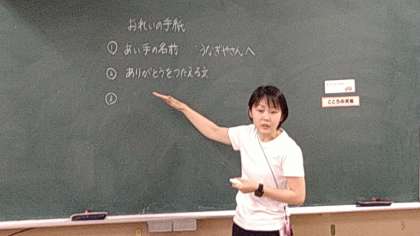 おれいの手紙
① あい手の名前　うなぎやさんへ
② ありがとうをつたえる文
③
こころの天気